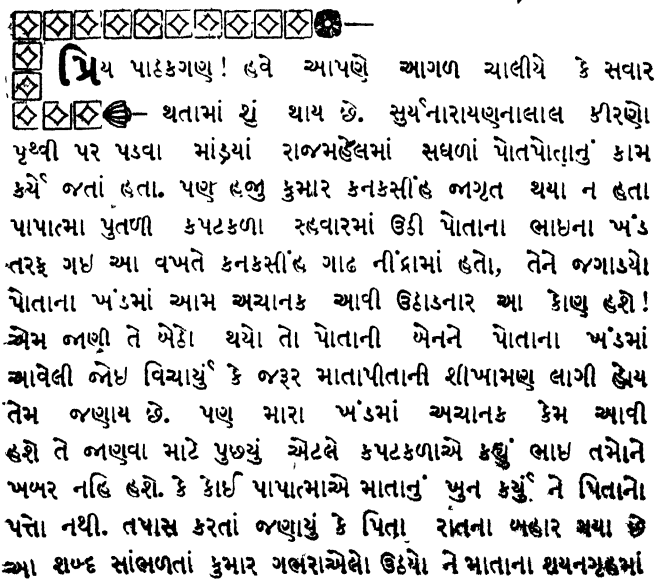 પ્રિય પાઠકગણ! હવે આપણે આગળ ચાલીયે કે સવાર
થતામાં શું થાય છે. સુર્યનારાયણનાલાલ કીરણો
પૃથ્વી પર પડવા માંડ્યાં રાજમહેલમાં સઘળાં પોતપોતાનું કામ
કર્યે જતાં હતા. પણ હજી કુમાર કનકસીંહ જાગૃત થયા ન હતા
પાપાત્મા પુતળી કપટકળા સ્હવારમાં ઉઠી પોતાના ભાઇના ખંડ
તરફ ગઇ આ વખતે કનકસીંહ ગાઢ નીંદ્રામાં હતો, તેને જગાડયો
પોતાના ખંડમાં આમ અચાનક આવી ઉઠાડનાર આ કોણ હશે!
એમ જાણી તે બેઠો થયો તો પોતાની બેનને પોતાના ખંડમાં
આવેલી જોઇ વિચાર્યું કે જરૂર માતાપીતાની શીખામણ લાગી હોય
તેમ જણાય છે. પણ મારા ખંડમાં અચાનક કેમ આવી
હશે તે જાણવા માટે પુછ્યું એટલે કપટકળાએ કહ્યું ભાઇ તમોને
ખબર નહિ હશે. કે કોઈ પાપાત્માએ માતાનું ખુન કર્યું ને પિતાનો
પત્તો નથી. તપાસ કરતાં જણાયું કે પિતા રાતના બહાર ગયા છે
આ શબ્દ સાંભળતાં કુમાર ગભરાએલો ઉઠયો ને માતાના શયનગૃહમાં